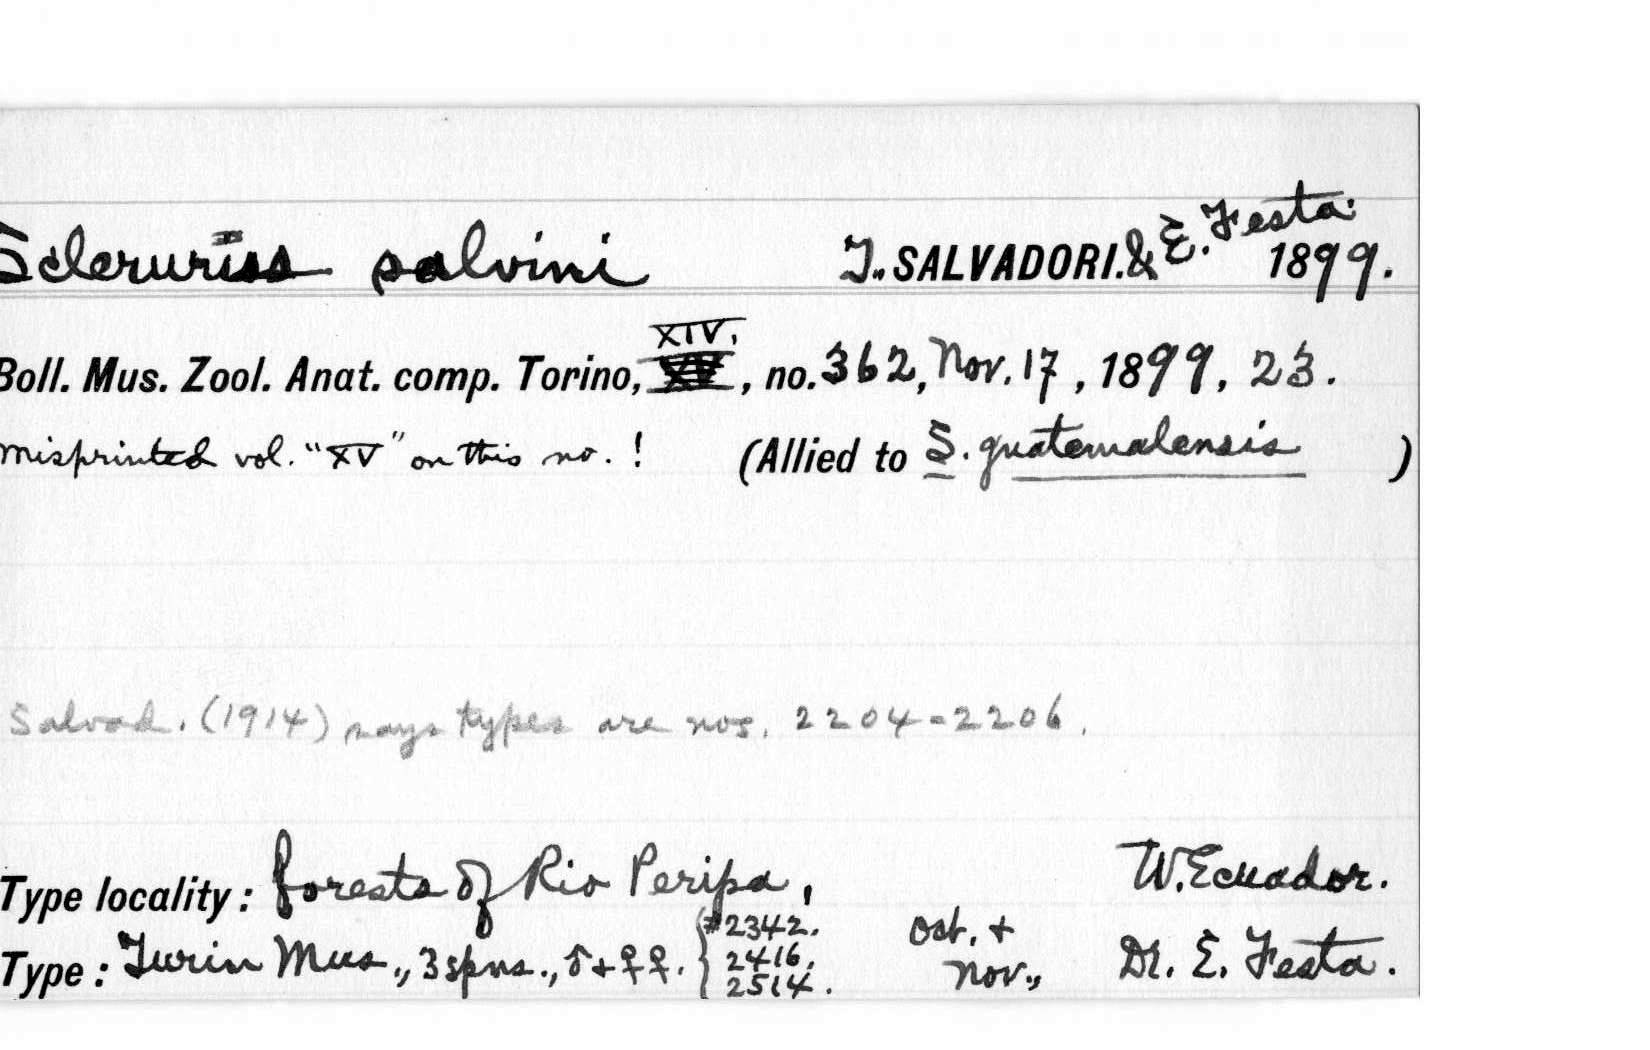 Sclerurus salvini T. SALVADORI. & E. Festa. 1899.
Boll. Mus. Zool. Anat. comp. Torino, XIV, no. 362, Nov. 17, 1899, 23.
Misprinted vol. "XV" on this no.! (Allied to S. guatemalensis )
Salvad. (1914) says types are nos. 2204-2206.
Type locality: forests of Rio Peripa, W. Ecuador.
Type: Turin Mus., 3 spns., ♂ + ♀♀. { #2342. 2416. 2514. Oct. + Nov., Dr. E. Festa.